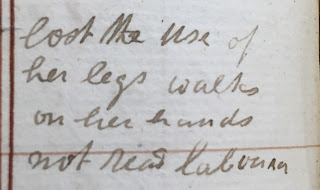 lost the use of
her legs walks
on her hands
not read Labourer